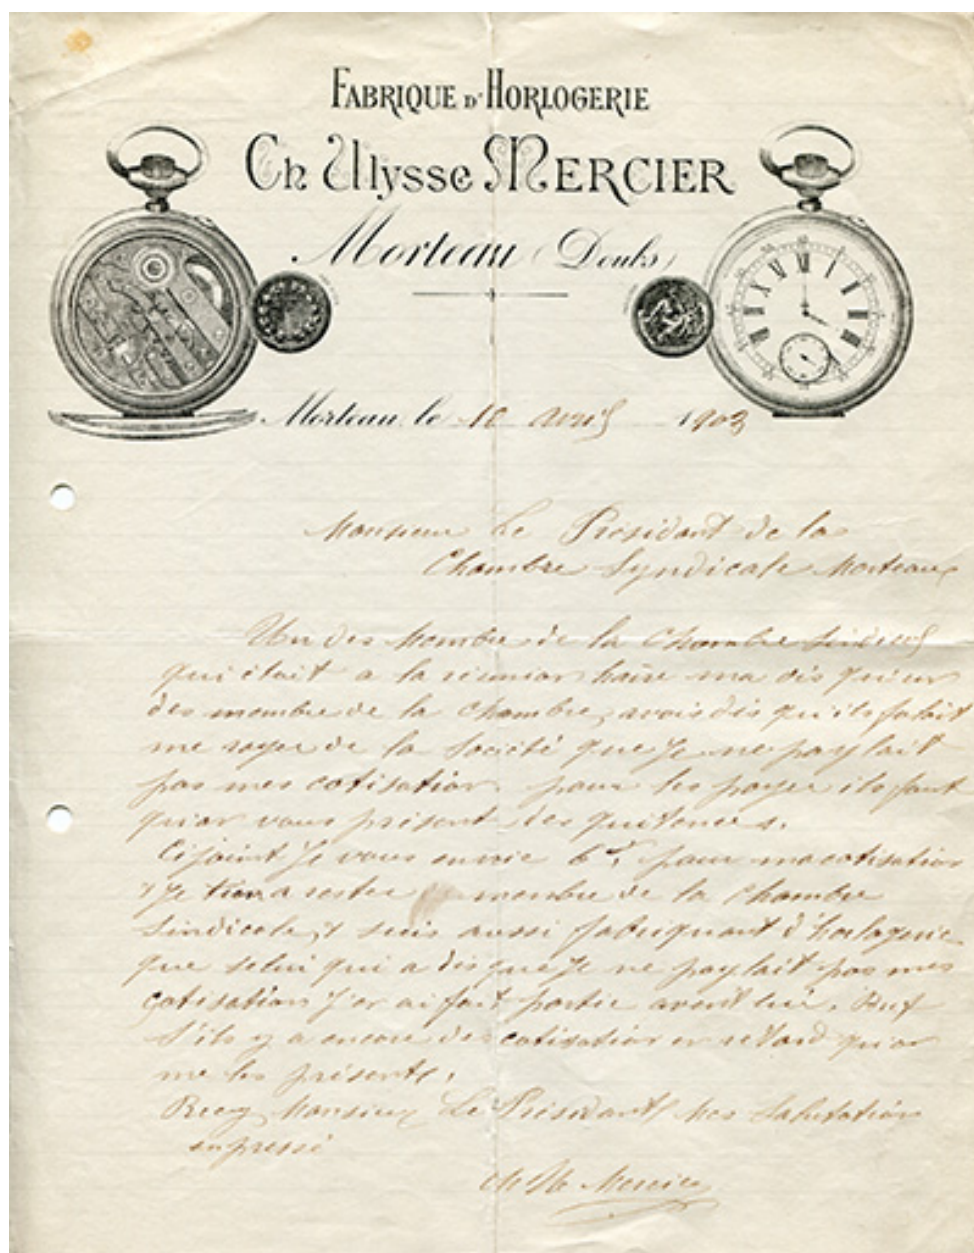 FABRIQUE D'HORLOGERIE
Ch Ulysse MERCIER
Morteau (Doubs)
Morteau, le 10 avril 1903
Monsieur Le Président de la
Chambre Syndicale Morteau
Un des Membre de la Chambre
qui était a la réunion ma dis qu'un
des membre de la Chambre, avais dis qu'ils falait
me rayer de la Société que Je ne paylait
pas mes cotisation, pour les payer ils faut
qu'on vous présent des quitences.
Cijoint Je vous envoie 6 f, pour ma cotisation
Je tien a rester membre de la Chambre
Sindicale, suis aussi fabriquant d'horlogerie
que selui qui a dis que Je ne paylait pas mes
cotisation J'en ai fait partie avant lui.
S'ils y a encore des cotisation en retard qu'on
me les présente,
Recey Monsieur Le Président Mes Salutation
enpressé
Ch Ul Mercier